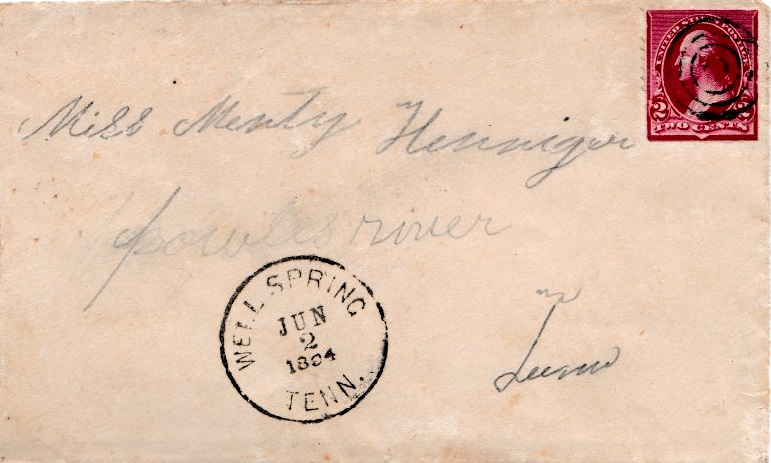 UNITED STATES POSTAGE
2 2
TWO CENTS
Miss Menty Henniger
powles river
Tenn
WELL SPRING
JUN
2
1894
TENN.